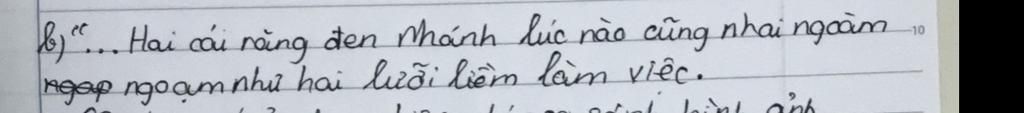 b) "... Hai cái răng đen nhánh lúc nào cũng nhai ngoàm
ngoạm như hai lưỡi liềm làm việc.
hình ảnh